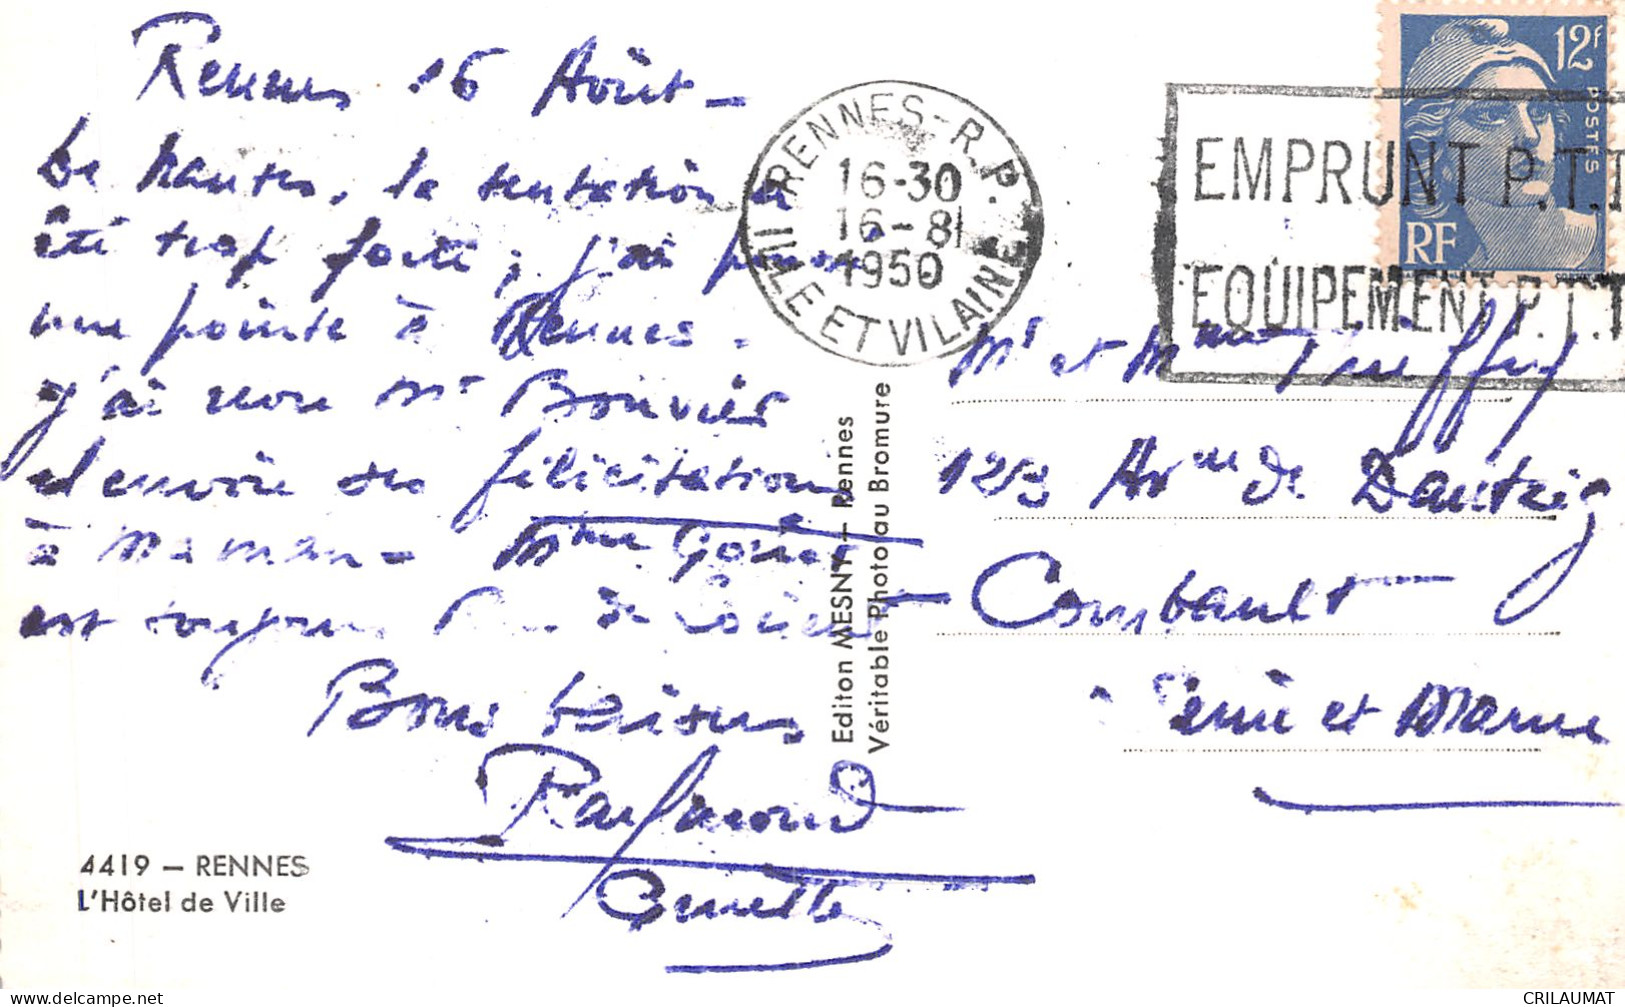 Rennes 16 Août -
De Nantes, la tentation a
été trop forte ; j'ai
une pointe à Rennes.
J'ai revu Mr Bouvier
et envoie ses félicitations
à Maman - Mme
est toujours de
Bons baisers
Raymond
Ginette
4419 - RENNES
L'Hôtel de Ville
Edition MESNY - Rennes
Véritable Photo au Bromure
RENNES-R.P.
16-30
16-8
1950
ILLE ET VILAINE
EMPRUNT P.T.T
EQUIPEMENT P.T.T
12F
POSTES
RF
Mr et Mme
123 Avenue de Dantzig
Combault
Seine et Marne
CRILAUMAT
delcampe.net